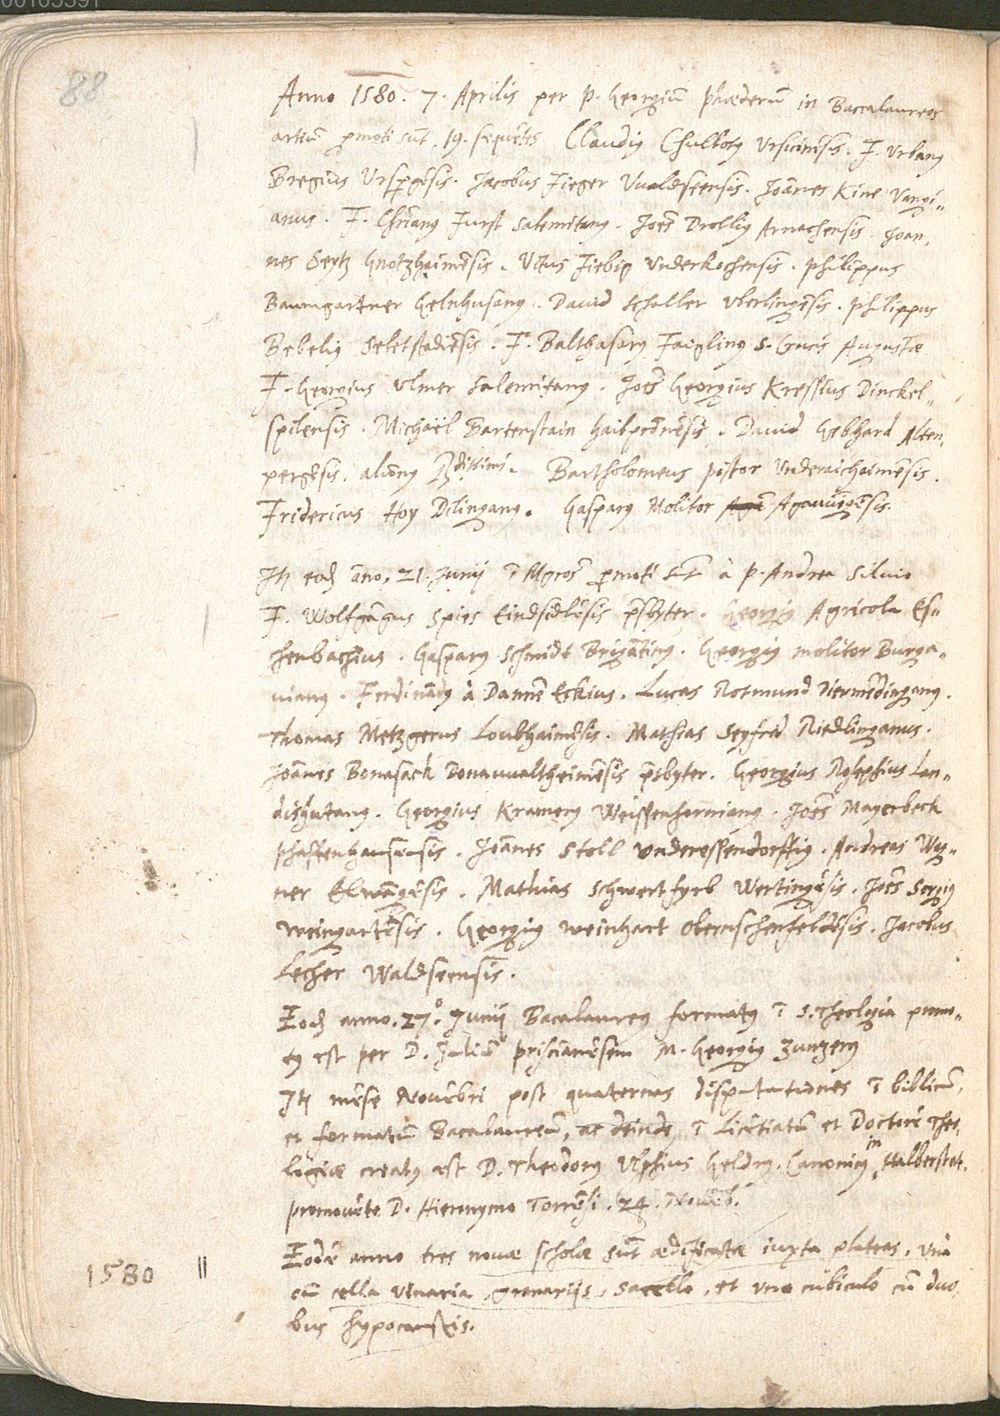 88
Anno 1580. 7. Aprilis per P. Georgiū Phaederū in Baccalaureos
artiū ꝓmoti sūt. 19. sequētes Claudiꝰ Ursicinēsis. F. Urbanꝰ
Bregius Urspergēsis. Jacobus Fieger Uualdseensis. Joānes Kine Vangi„
anus. F. Chrīanꝰ Furst Salemitanꝰ. Joēs Drolliꝰ Arnachensis. Joan,
nes Seytz Gnotzhaimēsis. Vitus Fiebig Underkochensis. Philippus
Baumgartner Gelnhusanꝰ. David Schaller Uberlingēsis. Philippus
Bebeliꝰ Seletstadiēsis. F. Balthasarꝰ Faigling S. Crucis Augustae
F. Georgius Ulmer Salemitanꝰ. Joēs Georgius Kressius Dinckel„
spilensis. Michaël Bartenstain Hailpronēsis. David Gebhard Alten,
pergēsis. alūnꝰ Bartholomeus Pistor Underaichaimensis.
Fridericus Hoy Dilinganꝰ. Gasparꝰ Molitor
Itē eodē āno, 21. Junij ī Mgros ꝓmoti sūt à P. Andrea Silvio
F. Wolfgāgus Spies Einsidlēsis p̄sbyter. Georgiꝰ Agricola Es„
chenbachius. Gasparꝰ Schmidt Brigātinꝰ. Georgiꝰ Molitor Burga„
uianꝰ. Ferdināndꝰ à Eckius. Lucas Rotmund Diermēdinganꝰ.
Thomas Metzgerus Loubhaimēsis. Mathias Seyfrid Riedlinganus.
Joānes Bonasack Donauualtheimēsis p̄sbyter. Georgius Rosephius Lan„
dishutanꝰ. Georgius Kramerꝰ Weissenhornianꝰ. Joēs Mayerbeck
Phaffenhausensis. Joānes Stoll Underessendorffiꝰ. Andreas Wag„
ner Elwāgēsis. Mathias Schwertfyrb Wertingēsis. Joēs Sergiꝰ
Weingartēsis. Georgiꝰ Weinhart Obernschenfeldēsis. Jacobus
Lecher Waldseensis.
Eodē anno. 27.° Junij Bacalaureꝰ formatꝰ ī S. Theologia promo„
tꝰ est per D. Juliū Priscianēsem M. Georgiꝰ Zunzerꝰ
Itē mēse Novēbri post quaternas disputationes ī biblicū,
et formatū Bacalaureū, ac deinde ī Licētiatū et Doctorē Theo,
logiae creatꝰ est D. Theodorꝰ Ulphius Geldrꝰ. Canonicꝰ in Halberstat.
promovēte D. Hieronymo Torrēsi. 24. Novēb.
1580 || Eodē anno tres novae scholae sūt aedificatae iuxta plateas, una
cū cella vinaria, granarijs, sacello, et uno cubiculo cū duo
bus hypocaustis.